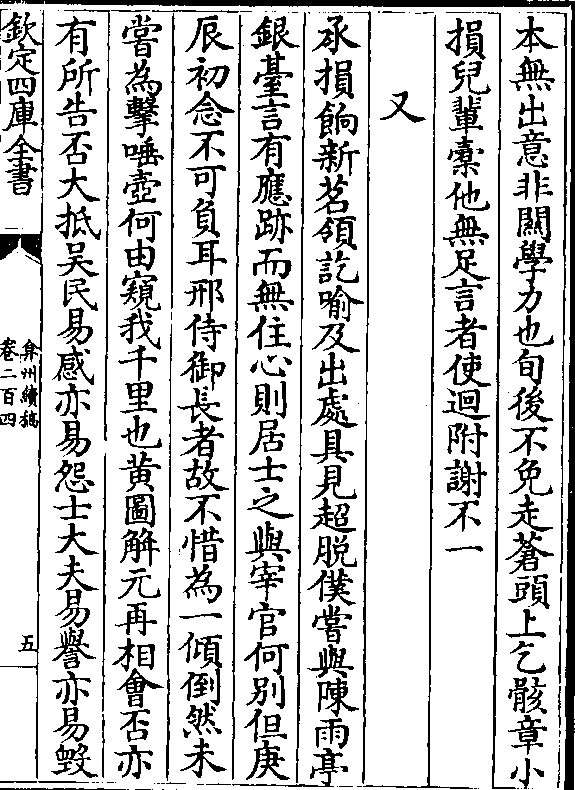 本無出意非關學力也旬後不免走蒼頭上乞骸章小
損兒軰槖他無足言者使迴附謝不一
又
承損餉新茗領訖喻及出處具見超脫僕嘗與陳雨亭
銀臺言有應跡而無住心則居士之與宰官何别但庚
辰初念不可負耳邢侍御長者故不惜為一傾倒然未
嘗為擊唾壺何由窺我千里也黄圖解元再相會否亦
有所告否大抵吴民易感亦易怨士大夫易譽亦易毁
欽定四庫全書
弇州續稿
卷二百四
五